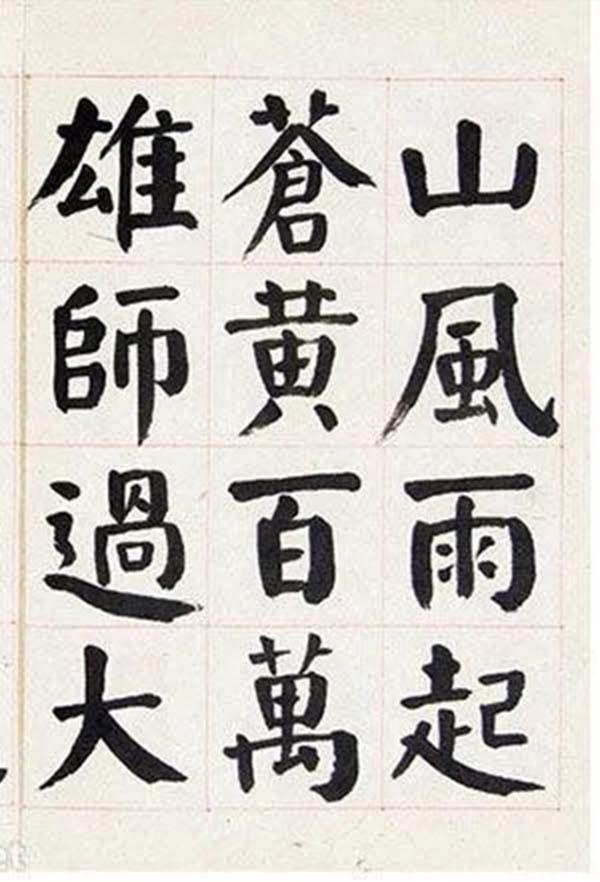 山風雨起
蒼黃百萬
雄師過大